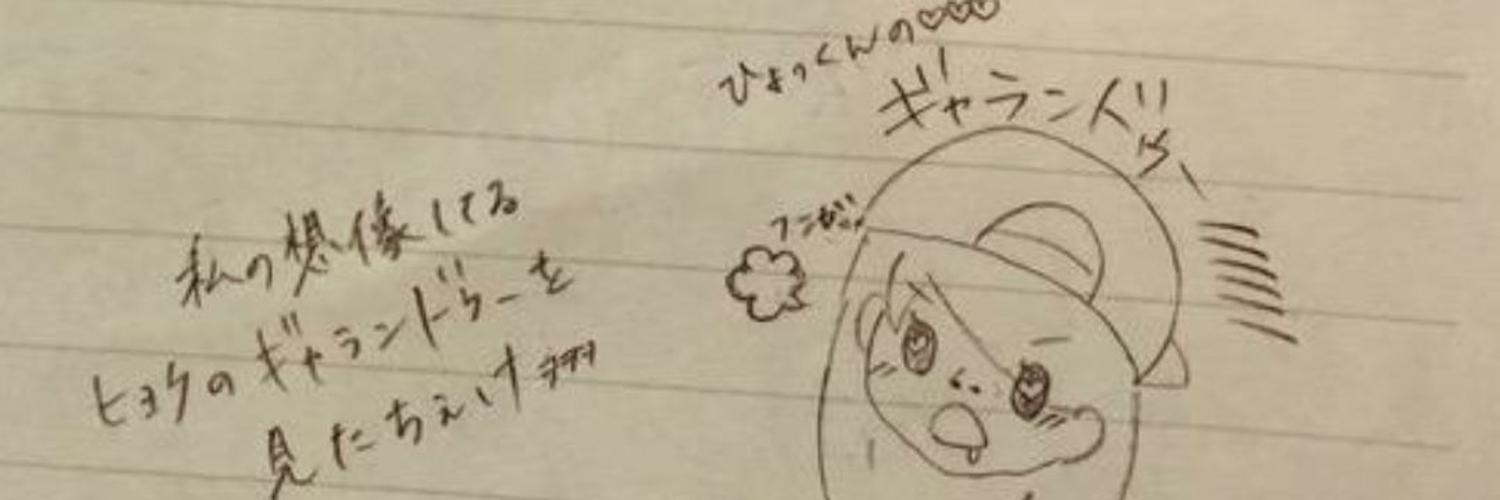 私の想像してる
ヒョクのギャランドゥーを
見たちぇけ
ひょっくんの♡♡♡
ギャランドゥー